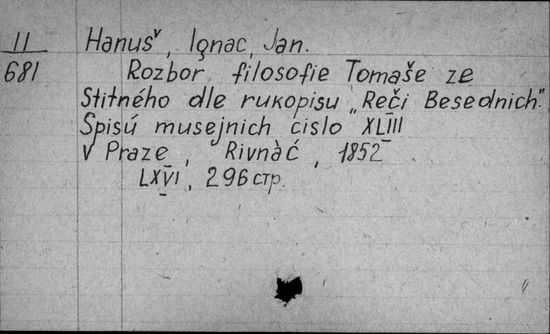 II
681
Hanuš, Ignac, Jan.
Rozbor filosofie Tomaše ze
Stitného dle rukopisu „Reči Besednich".
Spisú musejnich cislo XLIII
v Praze, Rivnàć, 1852
LXVI, 296 стр.